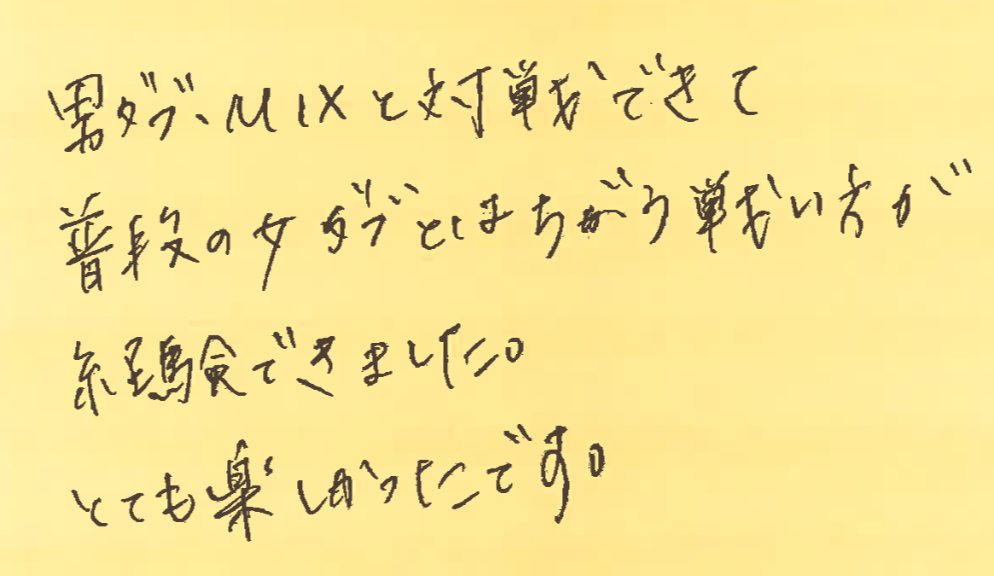 男ダブ、MIXと対戦できて
普段の女ダブとはちがう戦い方が
経験できました。
とても楽しかったです。